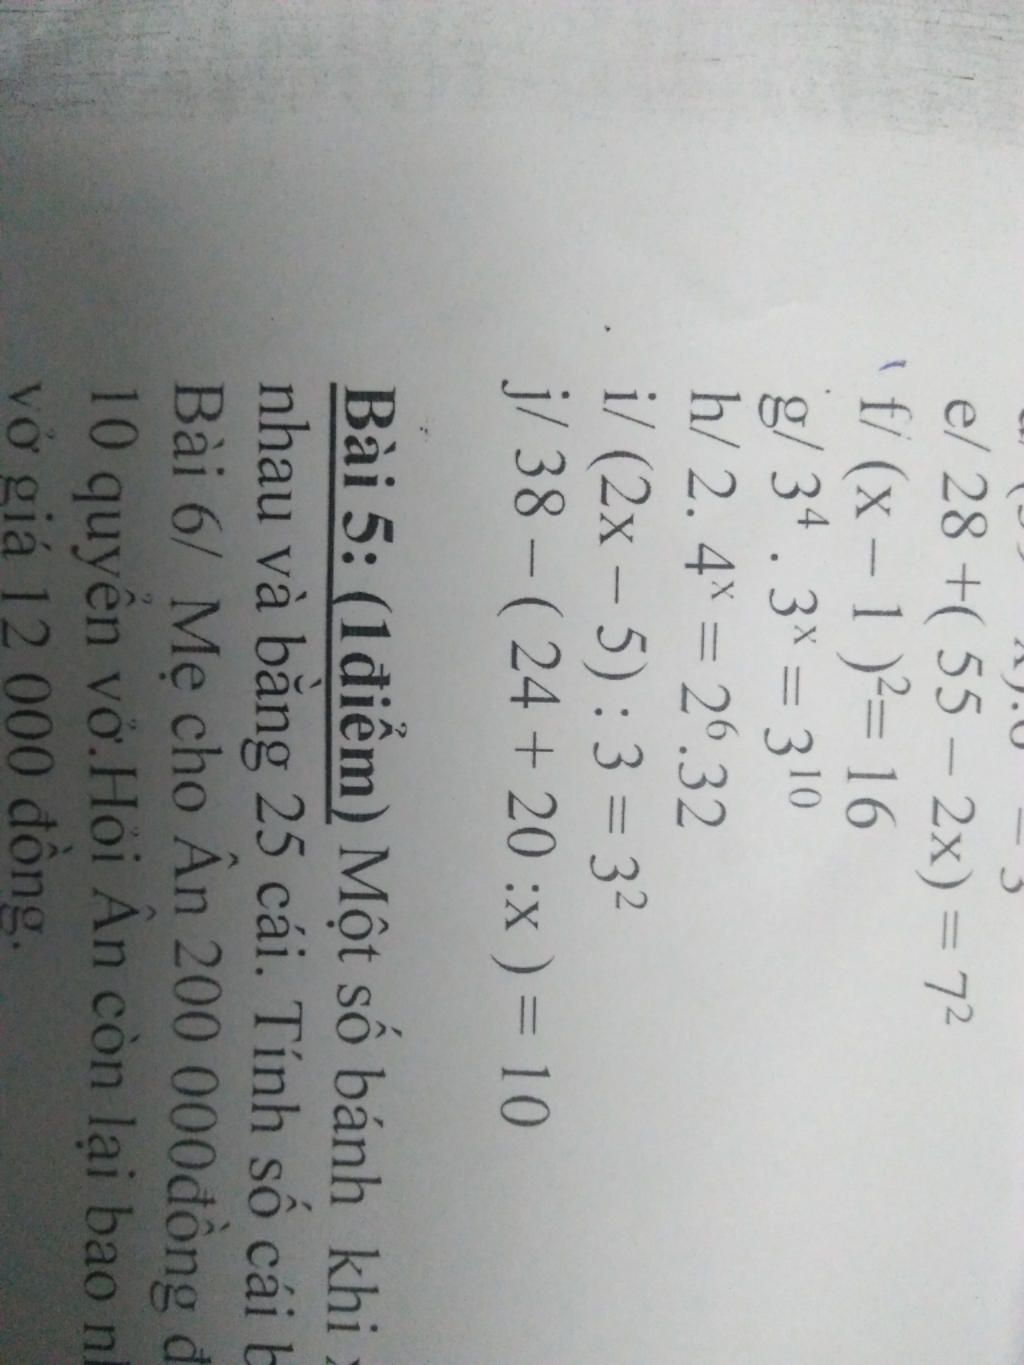 e/ 28 +( 55 – 2x) = 7²
f/ (x – 1 )²= 16
g/ 3⁴ . 3ˣ = 3¹⁰
h/ 2. 4ˣ = 2⁶.32
i/ (2x – 5) : 3 = 3²
j/ 38 – ( 24 + 20 :x ) = 10
Bài 5: (1điểm) Một số bánh khi
nhau và bằng 25 cái. Tính số cái
Bài 6/ Mẹ cho Ân 200 000đồng
10 quyển vở.Hỏi Ân còn lại bao
vở giá 12 000 đồng.